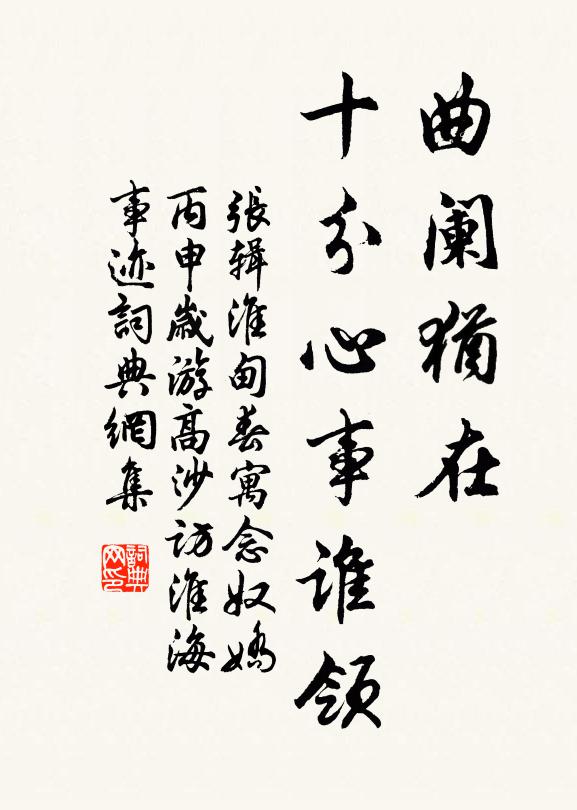 曲阑犹在
十分心事谁领
張辑淮甸春寓念奴嬌
丙申歲游高沙访淮海
事迹詞典網集
詞典网印